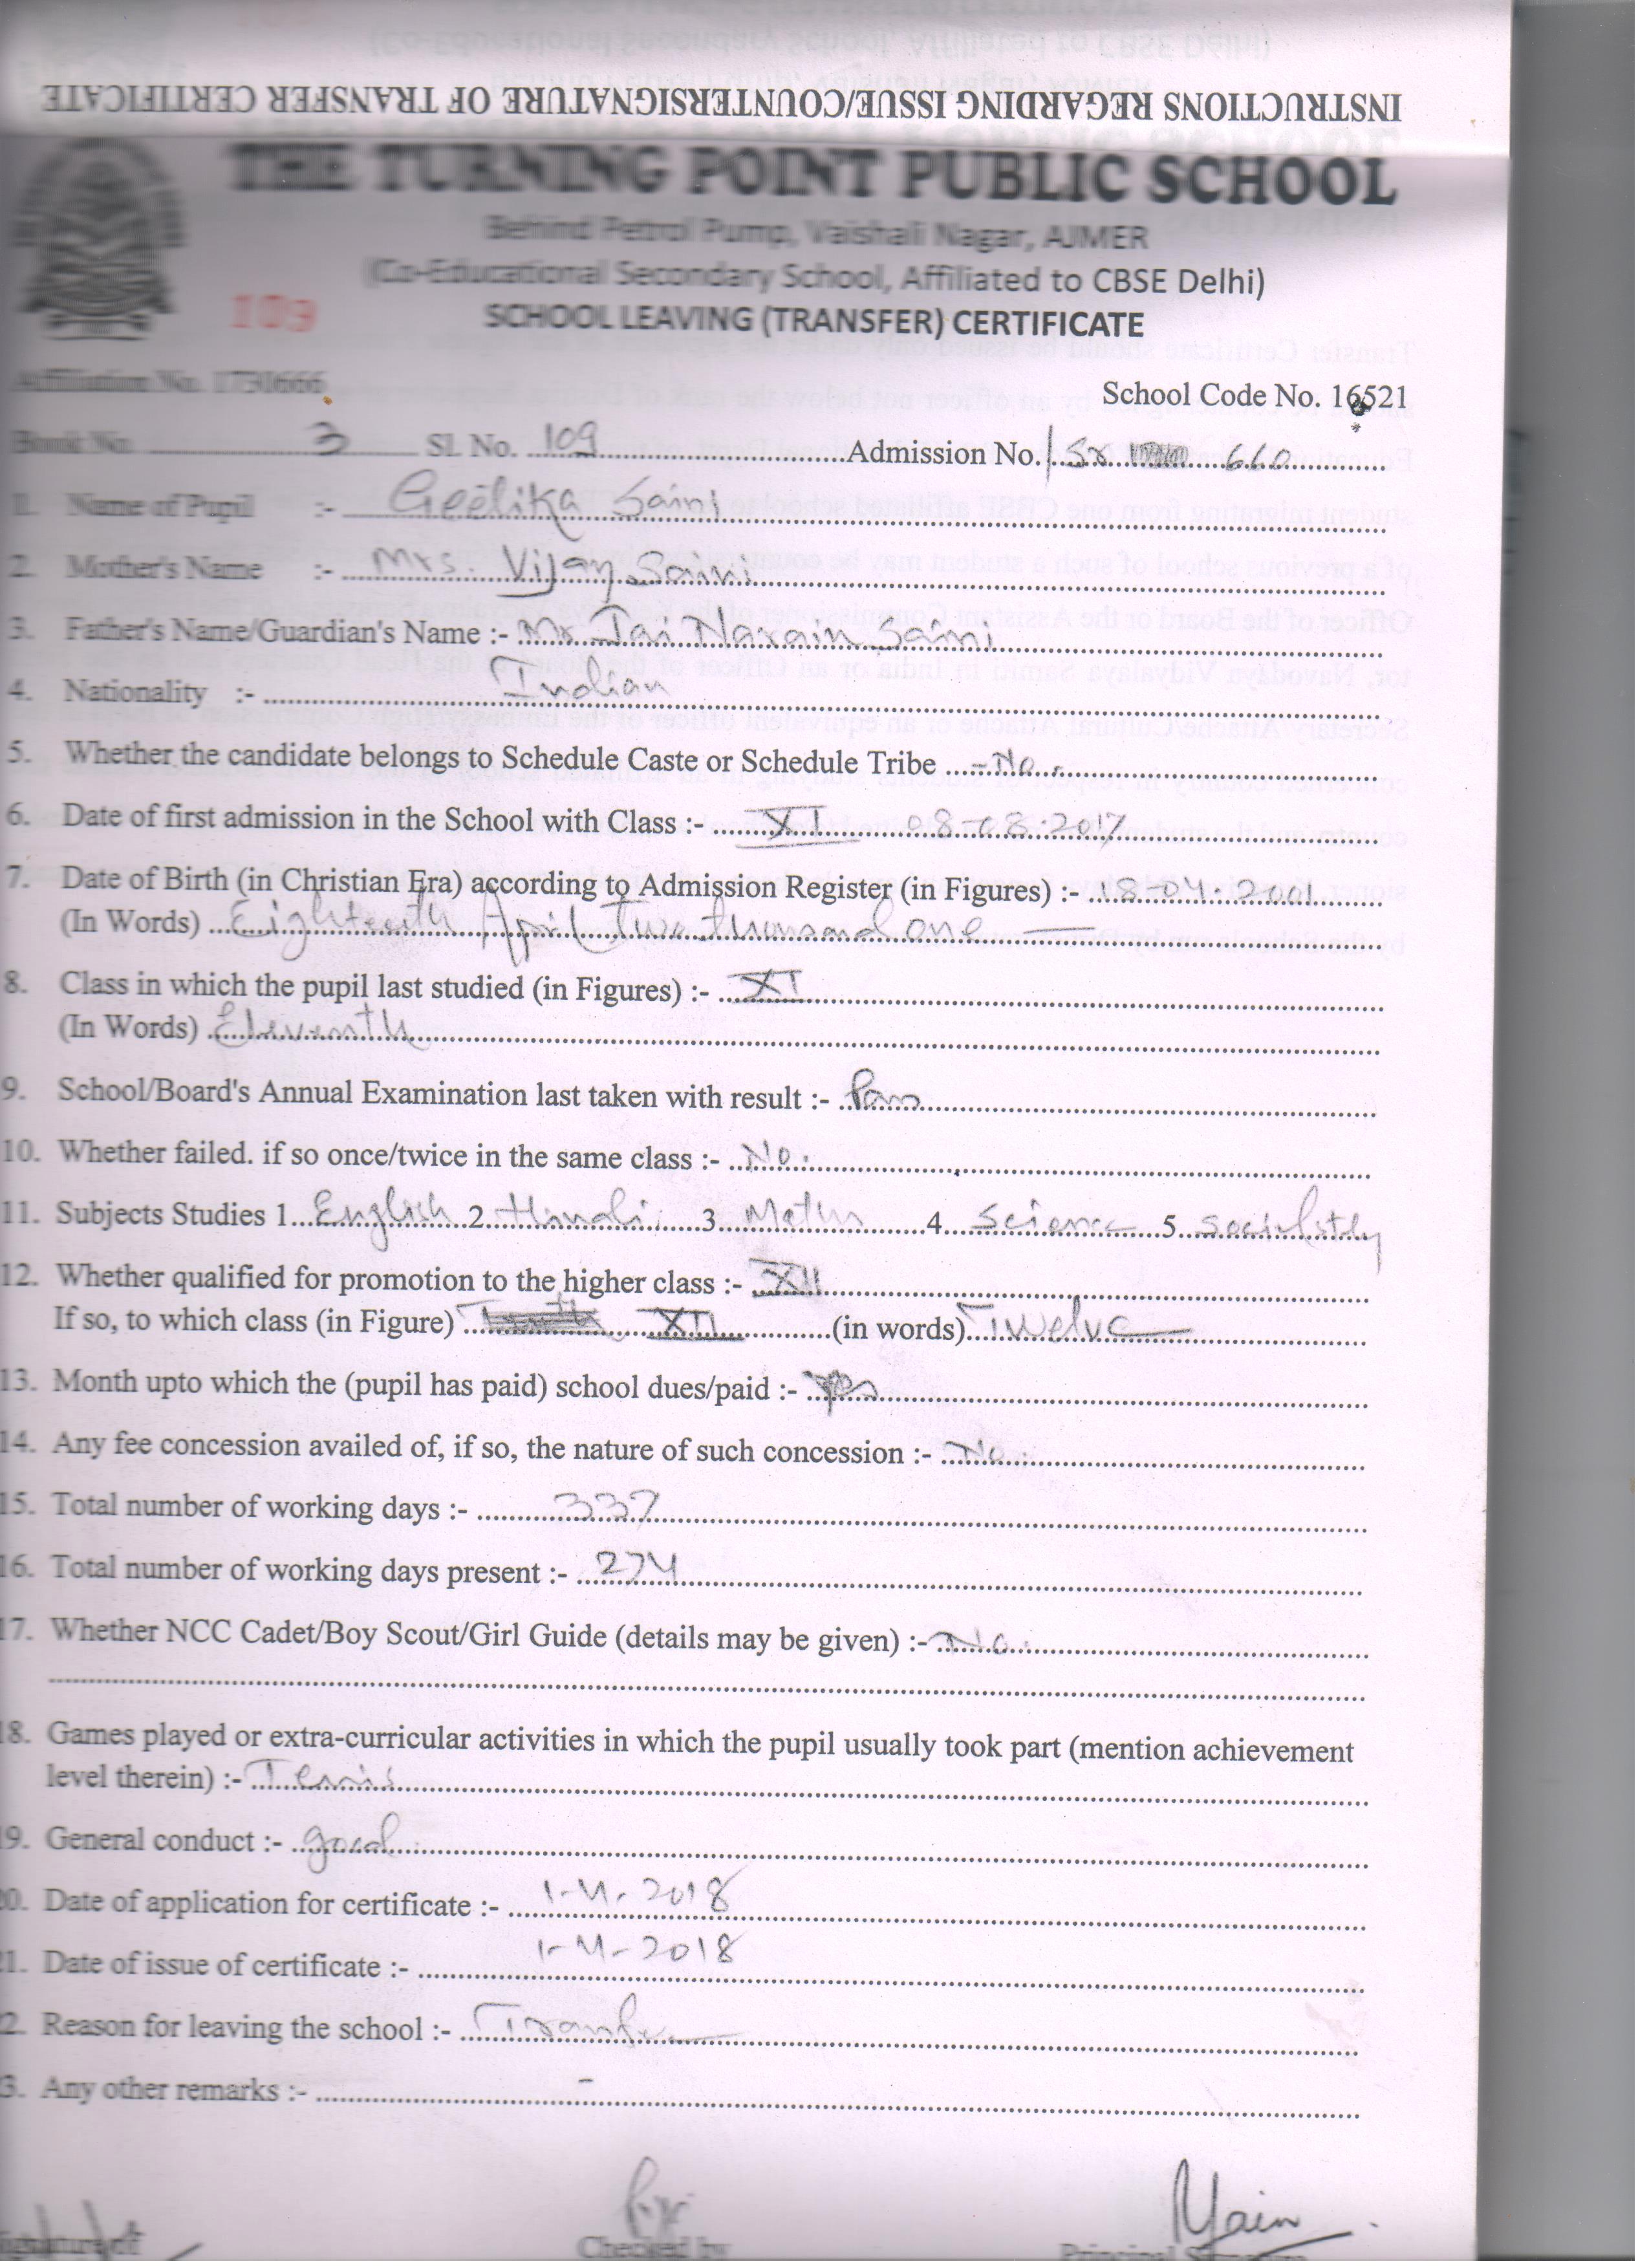 INSTRUCTIONS REGARDING ISSUE/COUNTERSIGNATURE OF TRANSFER CERTIFICATE
THE TURNING POINT PUBLIC SCHOOL
Behind Petrol Pump, Vaishali Nagar, AJMER
(Co-Educational Secondary School, Affiliated to CBSE Delhi)
109
SCHOOL LEAVING (TRANSFER) CERTIFICATE
Affiliation No. 1731666 School Code No. 16521
Book No. 3 Sl. No. 109 Admission No. / Sr 660
1. Name of Pupil :- Geetika Saini
2. Mother's Name :- Mrs. Vijay Saini
3. Father's Name/Guardian's Name :- Mr. Jai Narain Saini
4. Nationality :- Indian
5. Whether the candidate belongs to Schedule Caste or Schedule Tribe - No.
6. Date of first admission in the School with Class :- XI 08-08-2017
7. Date of Birth (in Christian Era) according to Admission Register (in Figures) :- 18-04-2001
(In Words) Eighteenth April Two thousand one
8. Class in which the pupil last studied (in Figures) :- XI
(In Words) Eleventh
9. School/Board's Annual Examination last taken with result :- Pass
10. Whether failed. if so once/twice in the same class :- No.
11. Subjects Studies 1. English 2. Hindi 3. Maths 4. Science 5.
12. Whether qualified for promotion to the higher class :- XII
If so, to which class (in Figure) XII (in words) Twelve
13. Month upto which the (pupil has paid) school dues/paid :- Yes
14. Any fee concession availed of, if so, the nature of such concession :- No.
15. Total number of working days :- 337
16. Total number of working days present :- 274
17. Whether NCC Cadet/Boy Scout/Girl Guide (details may be given) :- No.
18. Games played or extra-curricular activities in which the pupil usually took part (mention achievement
level therein) :- Tennis
19. General conduct :- good
20. Date of application for certificate :- 1-4-2018
21. Date of issue of certificate :- 1-4-2018
22. Reason for leaving the school :- Transfer
23. Any other remarks :- -
Signature of Checked by Principal